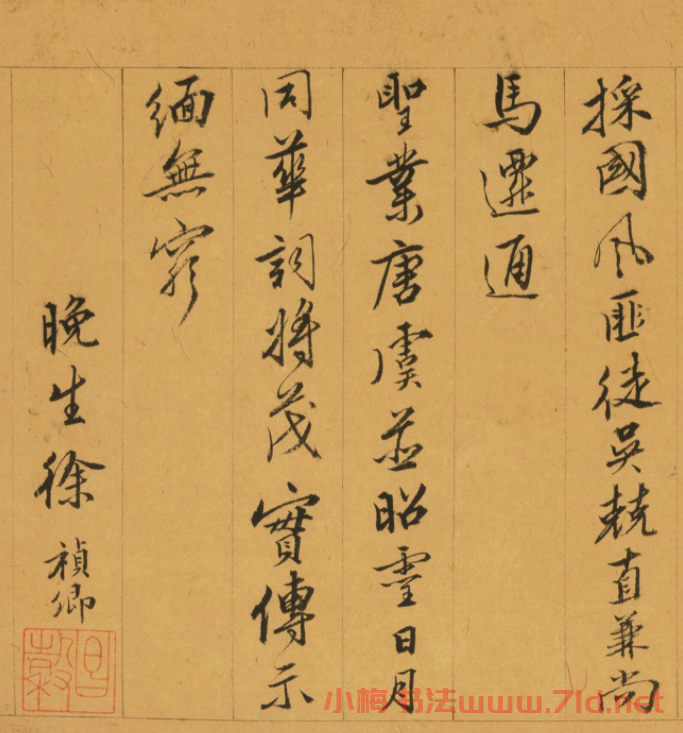 採國風匪徒吳兢直兼尚
馬遷通
聖業唐虞並昭靈日月
同華詞將茂實傳示
緬無窮
晚生徐禎卿
昌穀
小梅书法www.71d.net